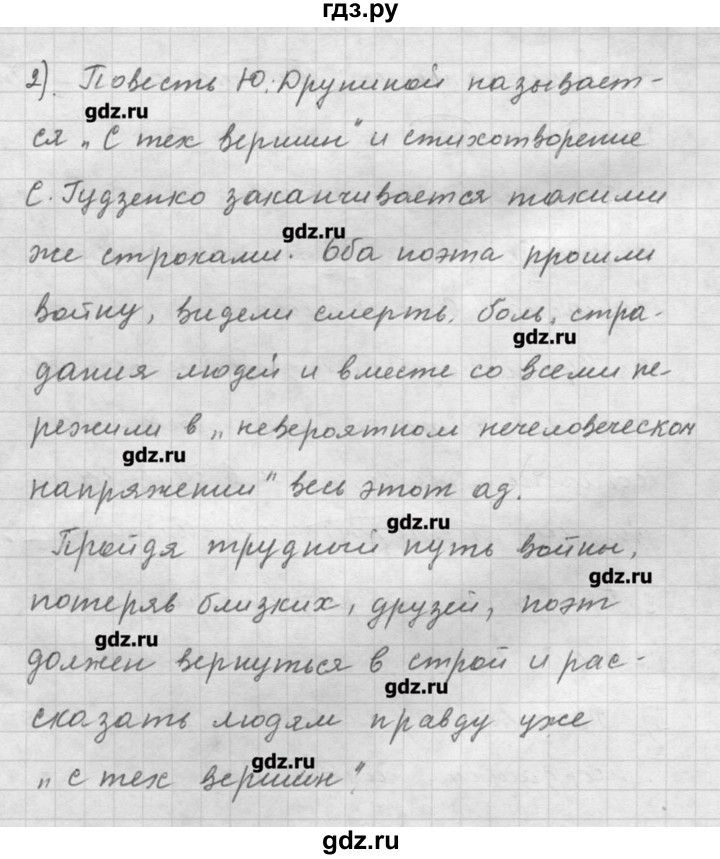 гдз.ру
2). Повесть Ю. Друниной называет-
gdz.ru
ся „С тех вершин" и стихотворение
С. Гудзенко заканчивается такими
gdz.ru
же строками. Оба поэта прошли
войну, видели смерть, боль, стра-
gdz.ru
дания людей и вместе со всеми пе-
режили в „невероятном нечеловеческом
gdz.ru
напряжении" весь этот ад.
gdz.ru
Пройдя трудный путь войны,
gdz.ru
потеряв близких, друзей, поэт
gdz.ru
должен вернуться в строй и рас-
gdz.ru
сказать людям правду уже
gdz.ru
„с тех вершин".
gdz.ru